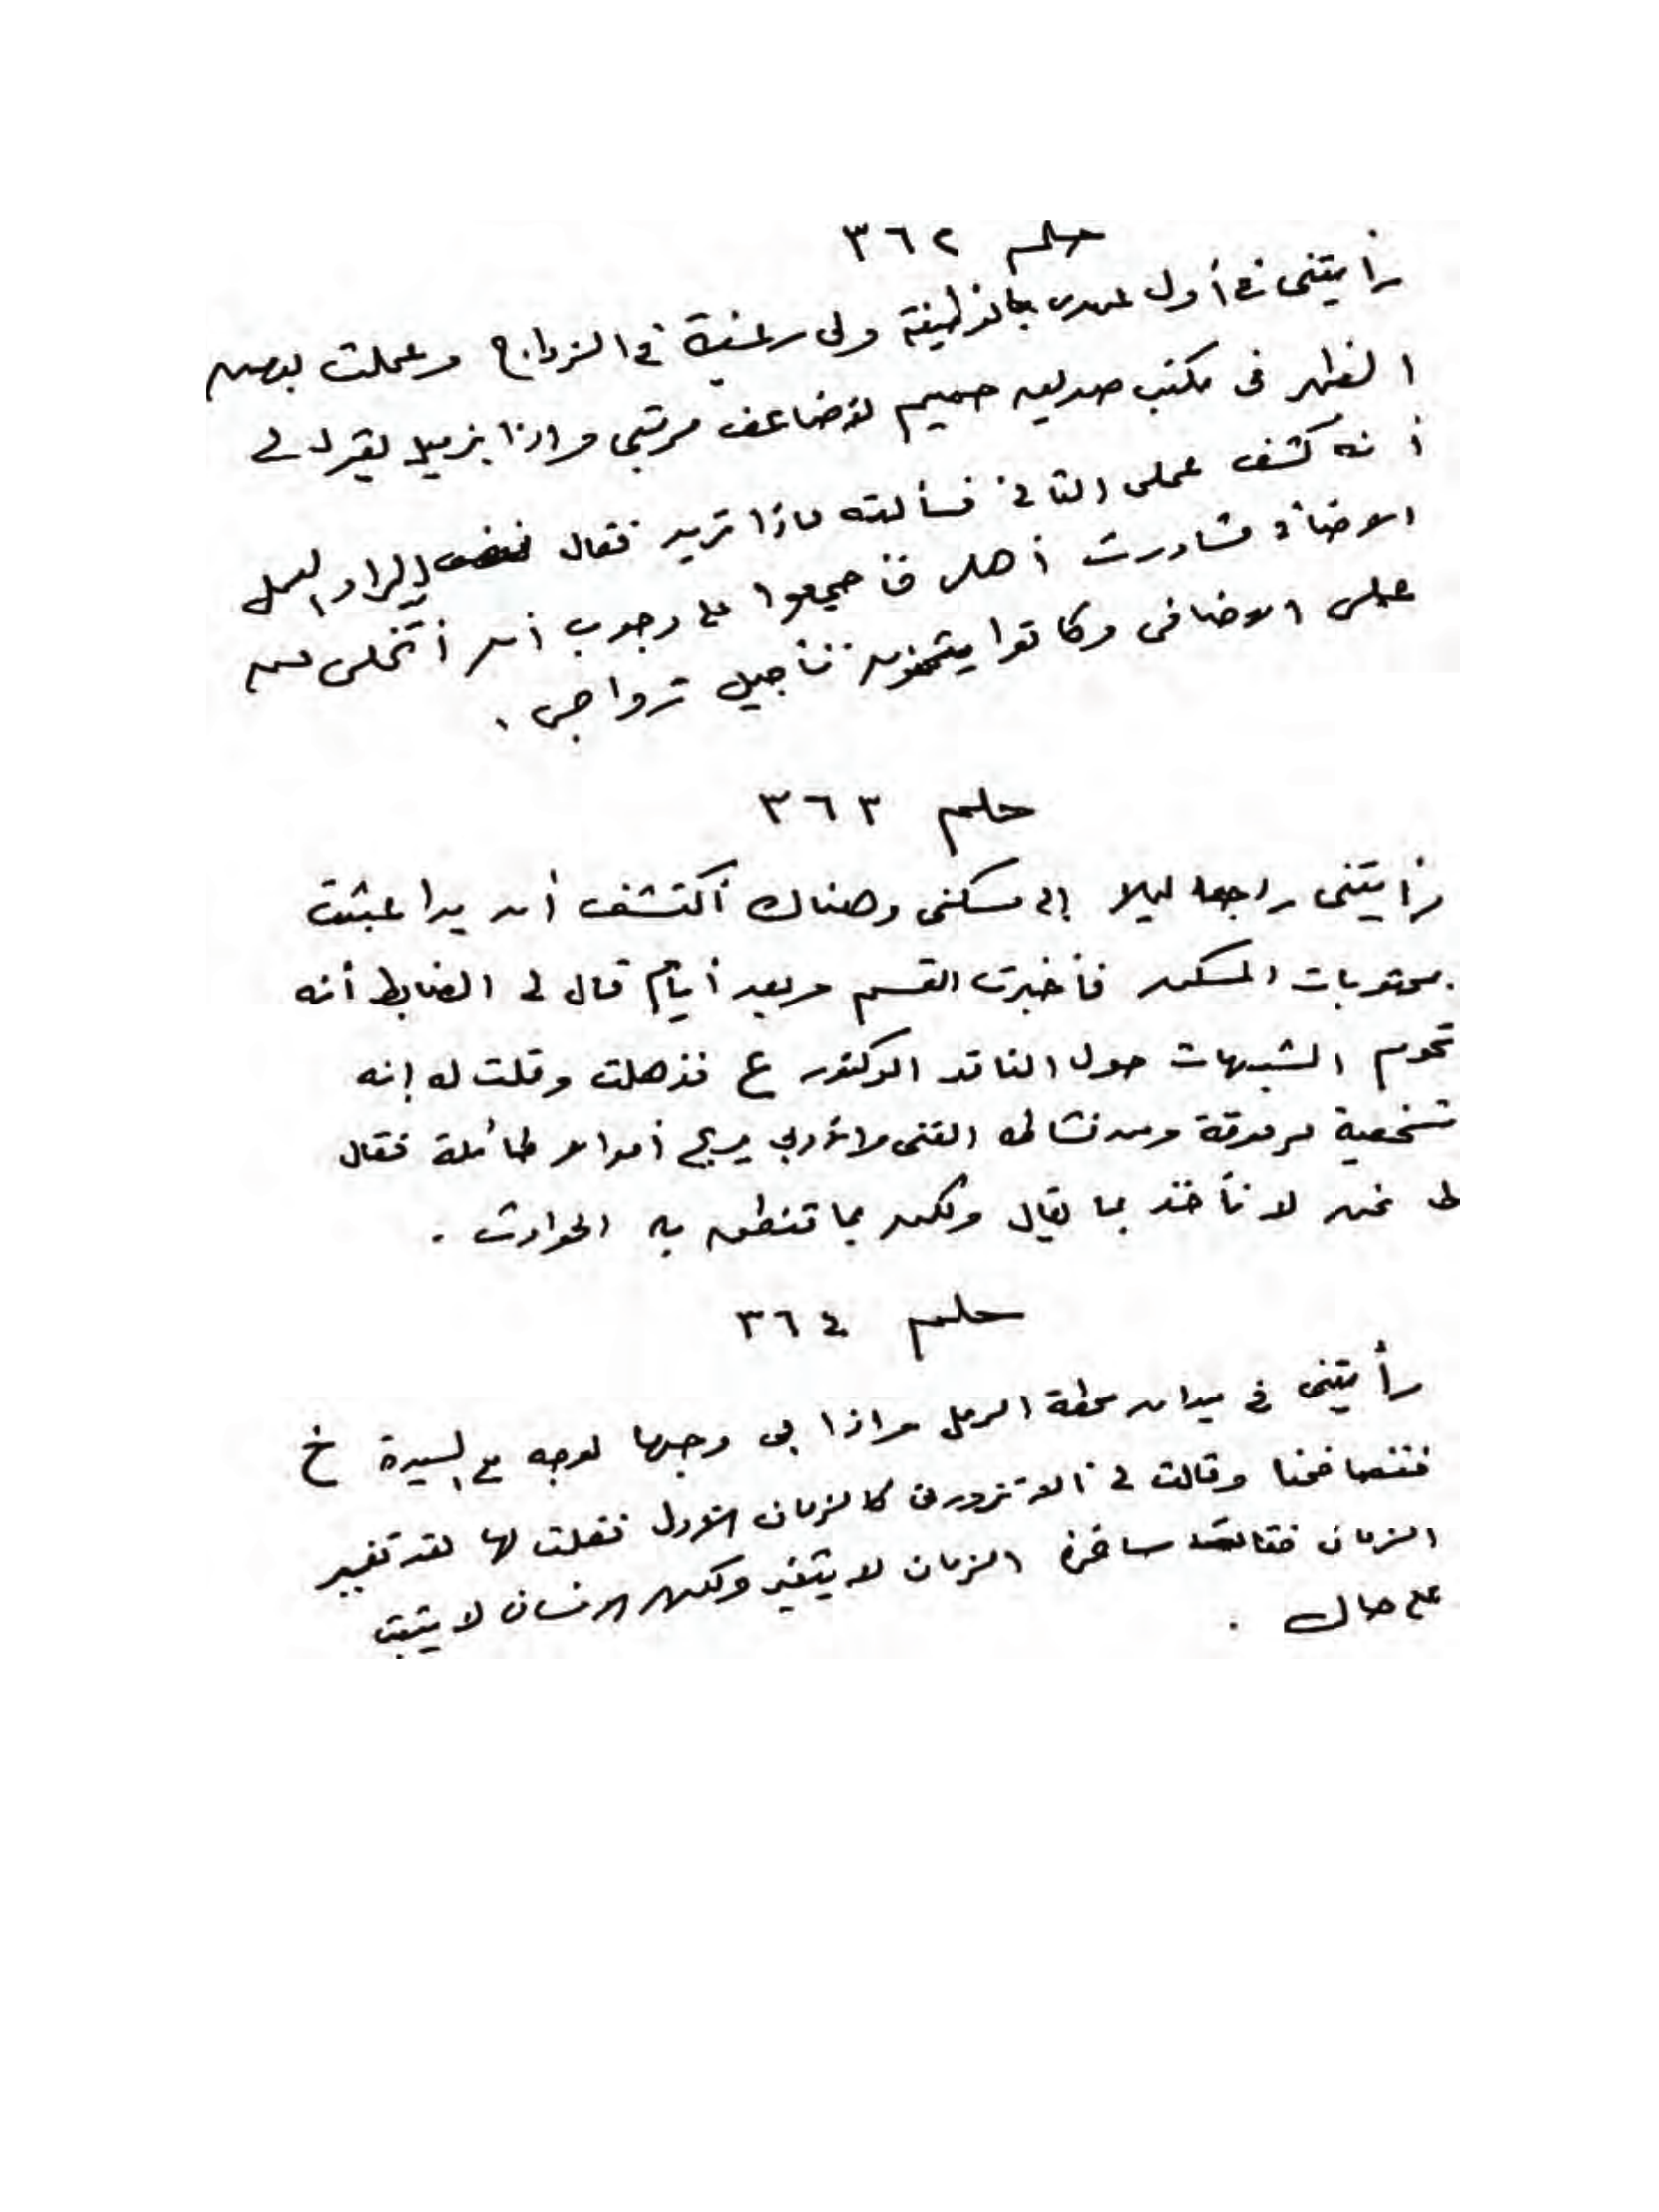 حلم ٣٦٢
رأيتنى فى أول عهدى بالوظيفة ولى رغبة فى الزواج وعملت بعد
الظهر فى مكتب صديق حميم لأضاعف مرتبى وإذا بزميل يقول لى
أنه كشف عملى الثانى فسألته ماذا تريد فقال نصف إيراد العمل
الاضافى فشاورت أهلى فأجمعوا على وجوب أن أتخلى عن
عملى الاضافى وكانوا يتمنون تأجيل زواجى .
حلم ٣٦٣
رأيتنى راجعا ليلا إلى مسكنى وهناك أكتشف أن يدا عبثت
بمحتويات المسكن فأخبرت القسم وبعد أيام قال لى الضابط أنه
تحوم الشبهات حول الناقد الدكتور ع فذهلت وقلت له إنه
شخصية مرموقة ومن نشاطه الفنى والأدبى يربح أموالا طائلة فقال
لى نحن لا نأخذ بما يقال ولكن بما تنطق به الحوادث .
حلم ٣٦٤
رأيتنى فى ميدان محطة الرمل وإذا بى وجها لوجه مع السيدة خ
فتصافحنا وقالت لى ألا تزورنى كالزمان الأول فقلت لها لقد تغير
الزمان فقالت ساخرة الزمان لا يتغير ولكن الانسان لا يثبت
على حال .